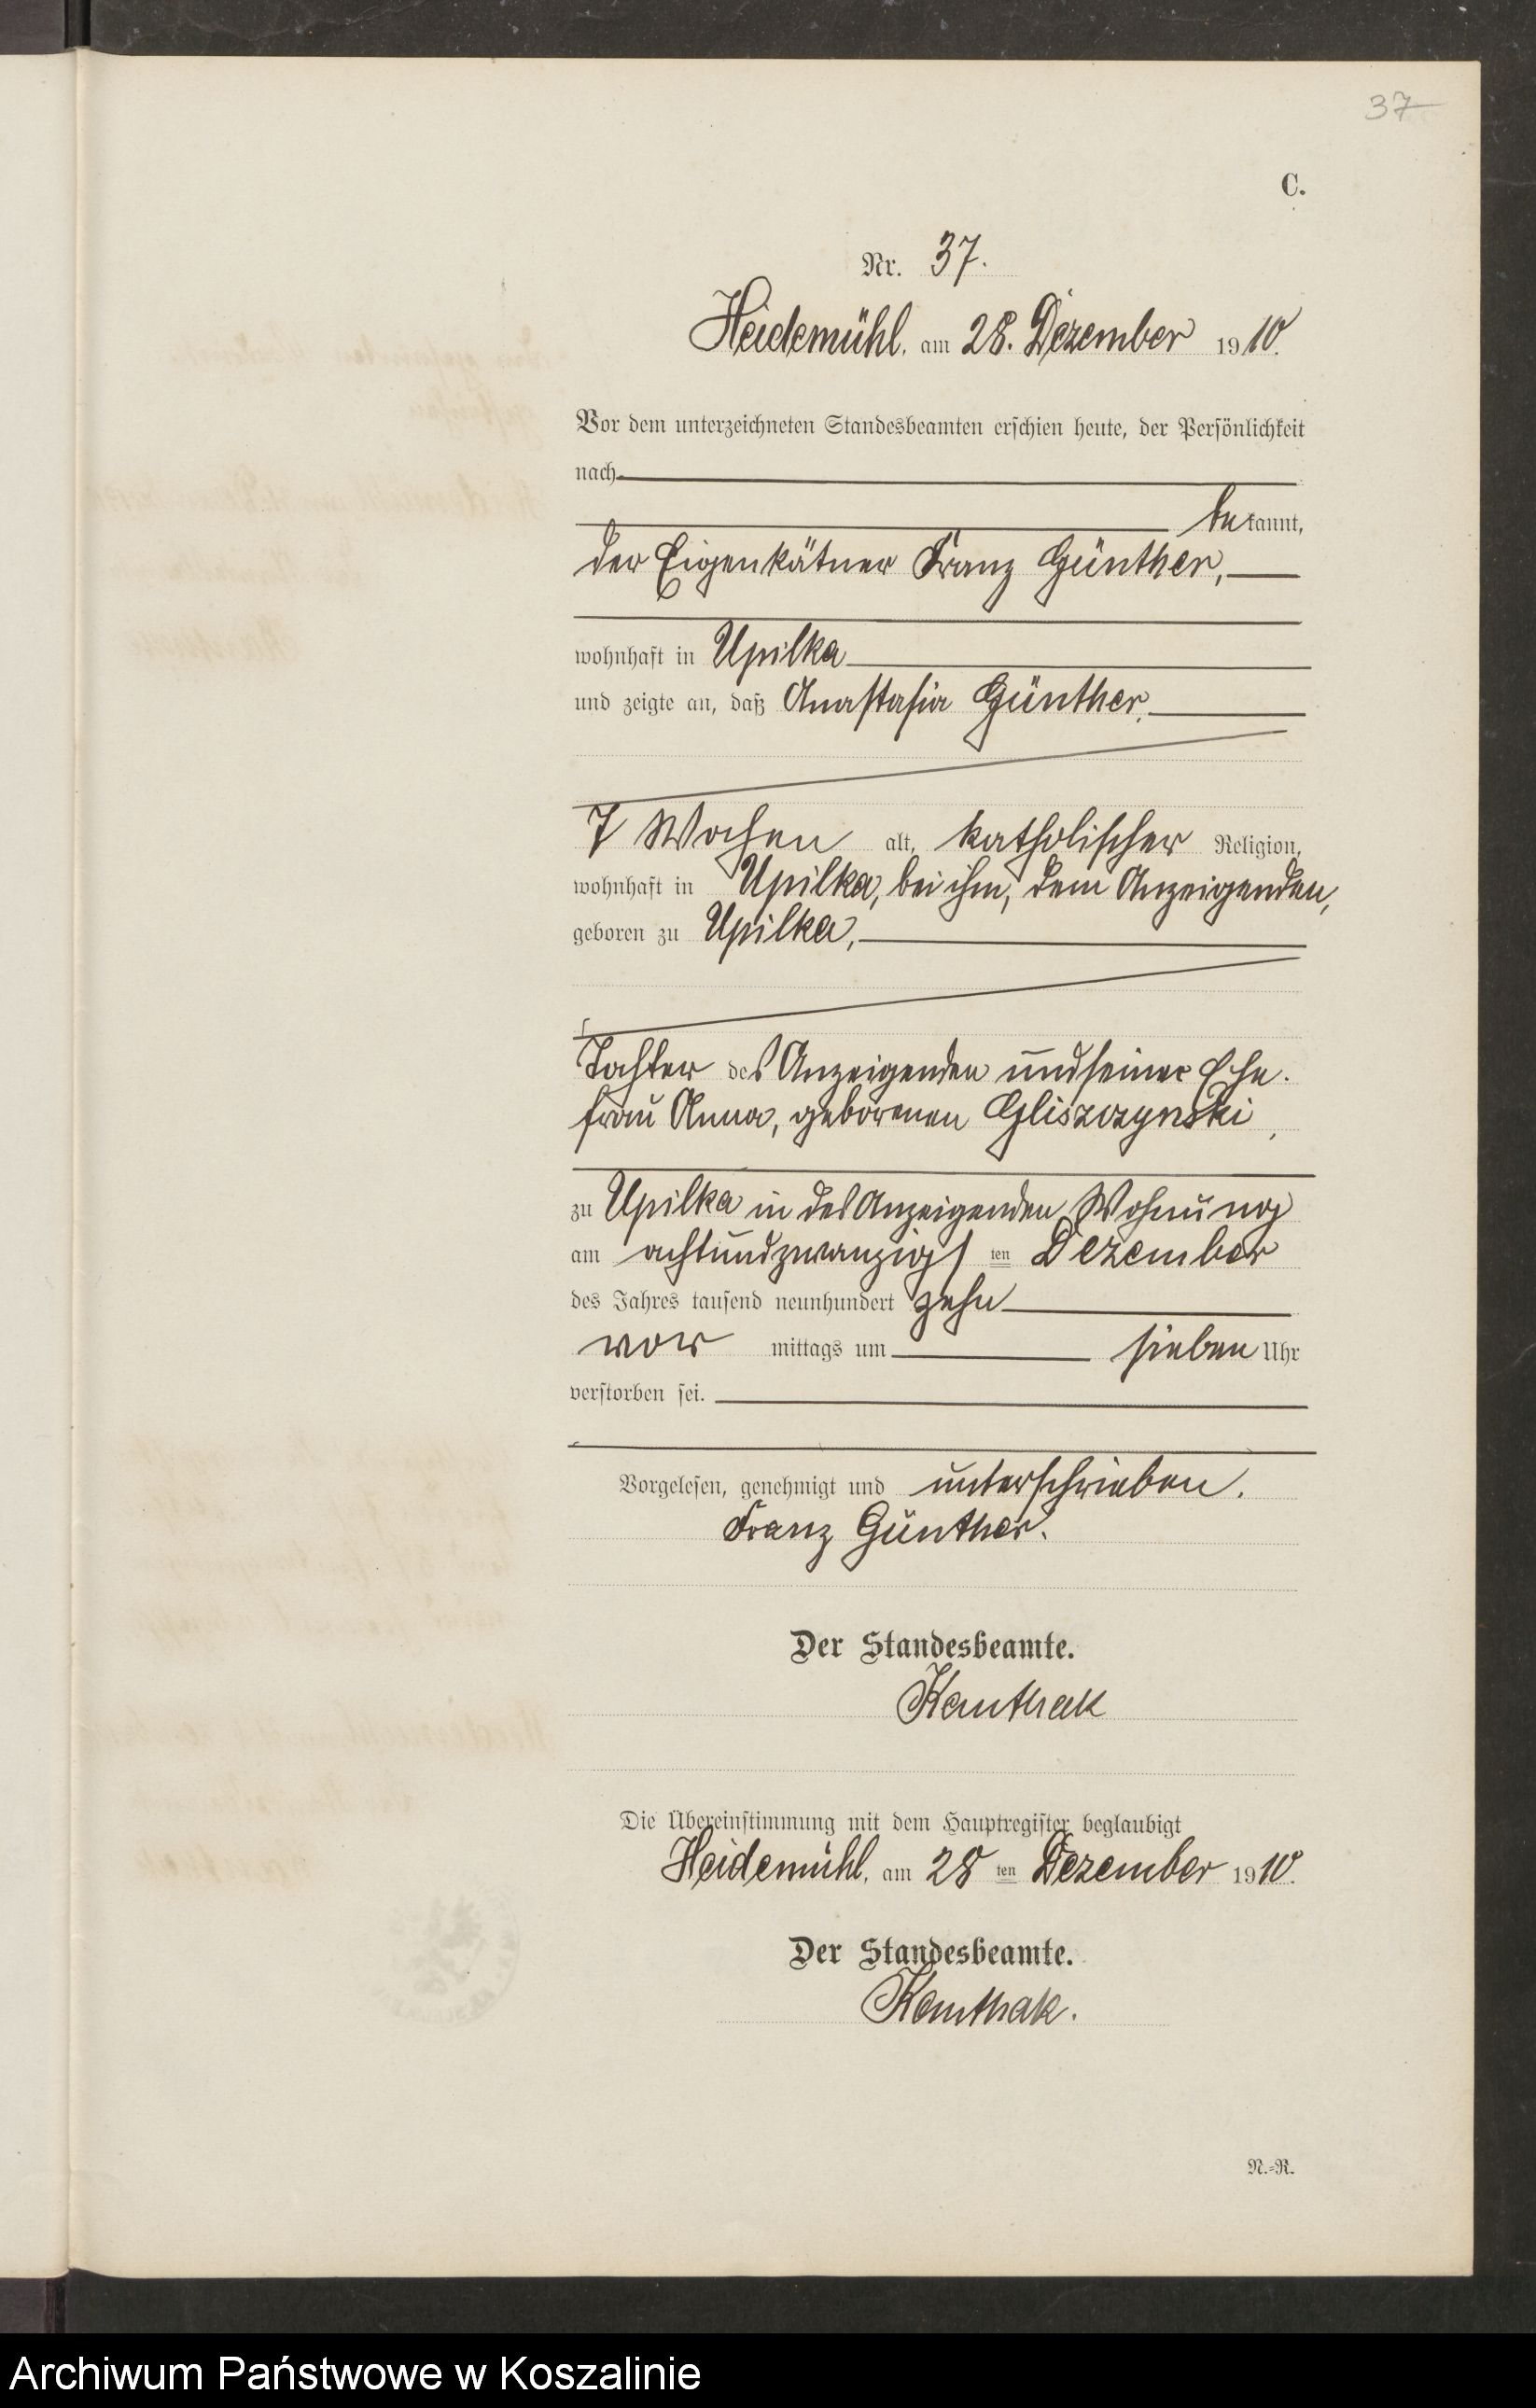 37
C.
Nr. 37.
Heidemühl, am 28. Dezember 1910.
Vor dem unterzeichneten Standesbeamten erschien heute, der Persönlichkeit
nach
bekannt,
der Eigenkätner Franz Günther,
wohnhaft in Upilka
und zeigte an, daß Anastasia Günther,
7 Wochen alt, katholischer Religion,
wohnhaft in Upilka, bei ihm, dem Anzeigenden,
geboren zu Upilka,
Tochter des Anzeigenden und seiner Ehe-
frau Anna, geborenen Gliszczynski,
zu Upilka in des Anzeigenden Wohnung
am achtundzwanzigsten Dezember
des Jahres tausend neunhundert zehn
vor mittags um sieben Uhr
verstorben sei.
Vorgelesen, genehmigt und unterschrieben.
Franz Günther.
Der Standesbeamte.
Kanthak
Die Übereinstimmung mit dem Hauptregister beglaubigt
Heidemühl, am 28 ten Dezember 1910.
Der Standesbeamte.
Kanthak.
N.-R.
Archiwum Państwowe w Koszalinie